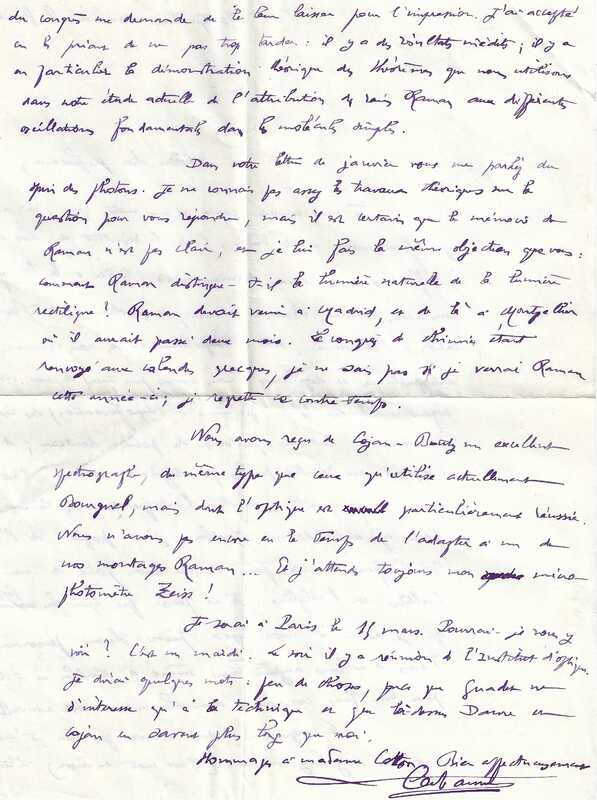 du congrès me demande de le leur laisser pour l'impression. J'ai accepté
en les priant de ne pas trop tarder : il y a des résultats inédits ; il y a
en particulier la démonstration théorique des théorèmes que nous utilisons
dans notre étude actuelle de l'attribution des raies Raman aux différentes
oscillations fondamentales dans les molécules simples.
Dans votre lettre de janvier vous me parlez du
spin des photons. Je ne connais pas assez les travaux théoriques sur la
question pour vous répondre, mais il est certain que le mémoire de
Raman n'est pas clair, et je lui fais la même objection que vous :
comment Raman distingue-t-il la lumière naturelle de la lumière
rectiligne ? Raman devait venir à Madrid, et de là à Montpellier
où il aurait passé deux mois. Le congrès de chimie étant
renvoyé aux calendes grecques, je ne sais pas si je verrai Raman
cette année-ci ; je regrette ce contre temps.
Nous avons reçu de Cojan - un excellent
spectrographe, du même type que ceux qu'utilise actuellement
Bourguel, mais dont l'optique est particulièrement réussie.
Nous n'avons pas encore eu le temps de l'adapter à un de
nos montages Raman... Et j'attends toujours mon micro
photomètre Zeiss !
Je serai à Paris le 15 mars. Pourrai-je vous y
voir ? C'est un mardi. Le soir il y a réunion de l'Institut d'optique.
Je dirai quelques mots : peu de choses, parce que ne
s'intéresse qu'à la technique et que là-dessus et
Cojan en savent plus long que moi.
Hommages à madame Cotton Bien affectueusement
Cabannes